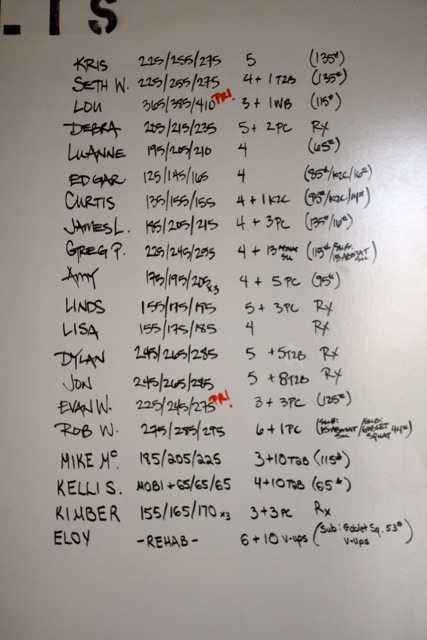 LTS
KRIS 225/255/275 5 (135#)
SETH W. 225/255/275 4 + 1 T2B (135#)
LOU 365/385/410 PR! 3 + 1WB (115#)
DEBRA 205/215/235 5 + 2PC Rx
LUANNE 195/205/210 4 (65#)
EDGAR 125/145/165 4 (85#/K2C/16#)
CURTIS 135/155/155 4 + 1 K2C
JAMES L. 185/205/215 4 + 3PC (135#/16#)
GREG P. 225/245/255 4 + 13 ABMAT SU (115#/SUB: ABMAT SU)
AMY 175/195/205 x3 4 + 5 PC (95#)
LINDS 155/175/195 5 + 3PC Rx
LISA 155/175/185 4 Rx
DYLAN 245/265/285 5 + 5T2B Rx
JON 245/265/285 5 + 8T2B Rx
EVAN W. 225/245/275 PR! 3 + 3PC (125#)
ROB W. 275/285/295 6 + 1PC (SUB: ABMAT SU/SUB: GOBLET SQUAT 44#)
MIKE Mc 185/205/225 3+10T2B (115#)
KELLI S. MOBI + 65/65/65 4+10T2B (65#)
KIMBER 155/165/170 x3 3+3PC Rx
ELOY -REHAB- 6 + 10 V-UPS (Sub: Goblet Sq. 53# V-ups)